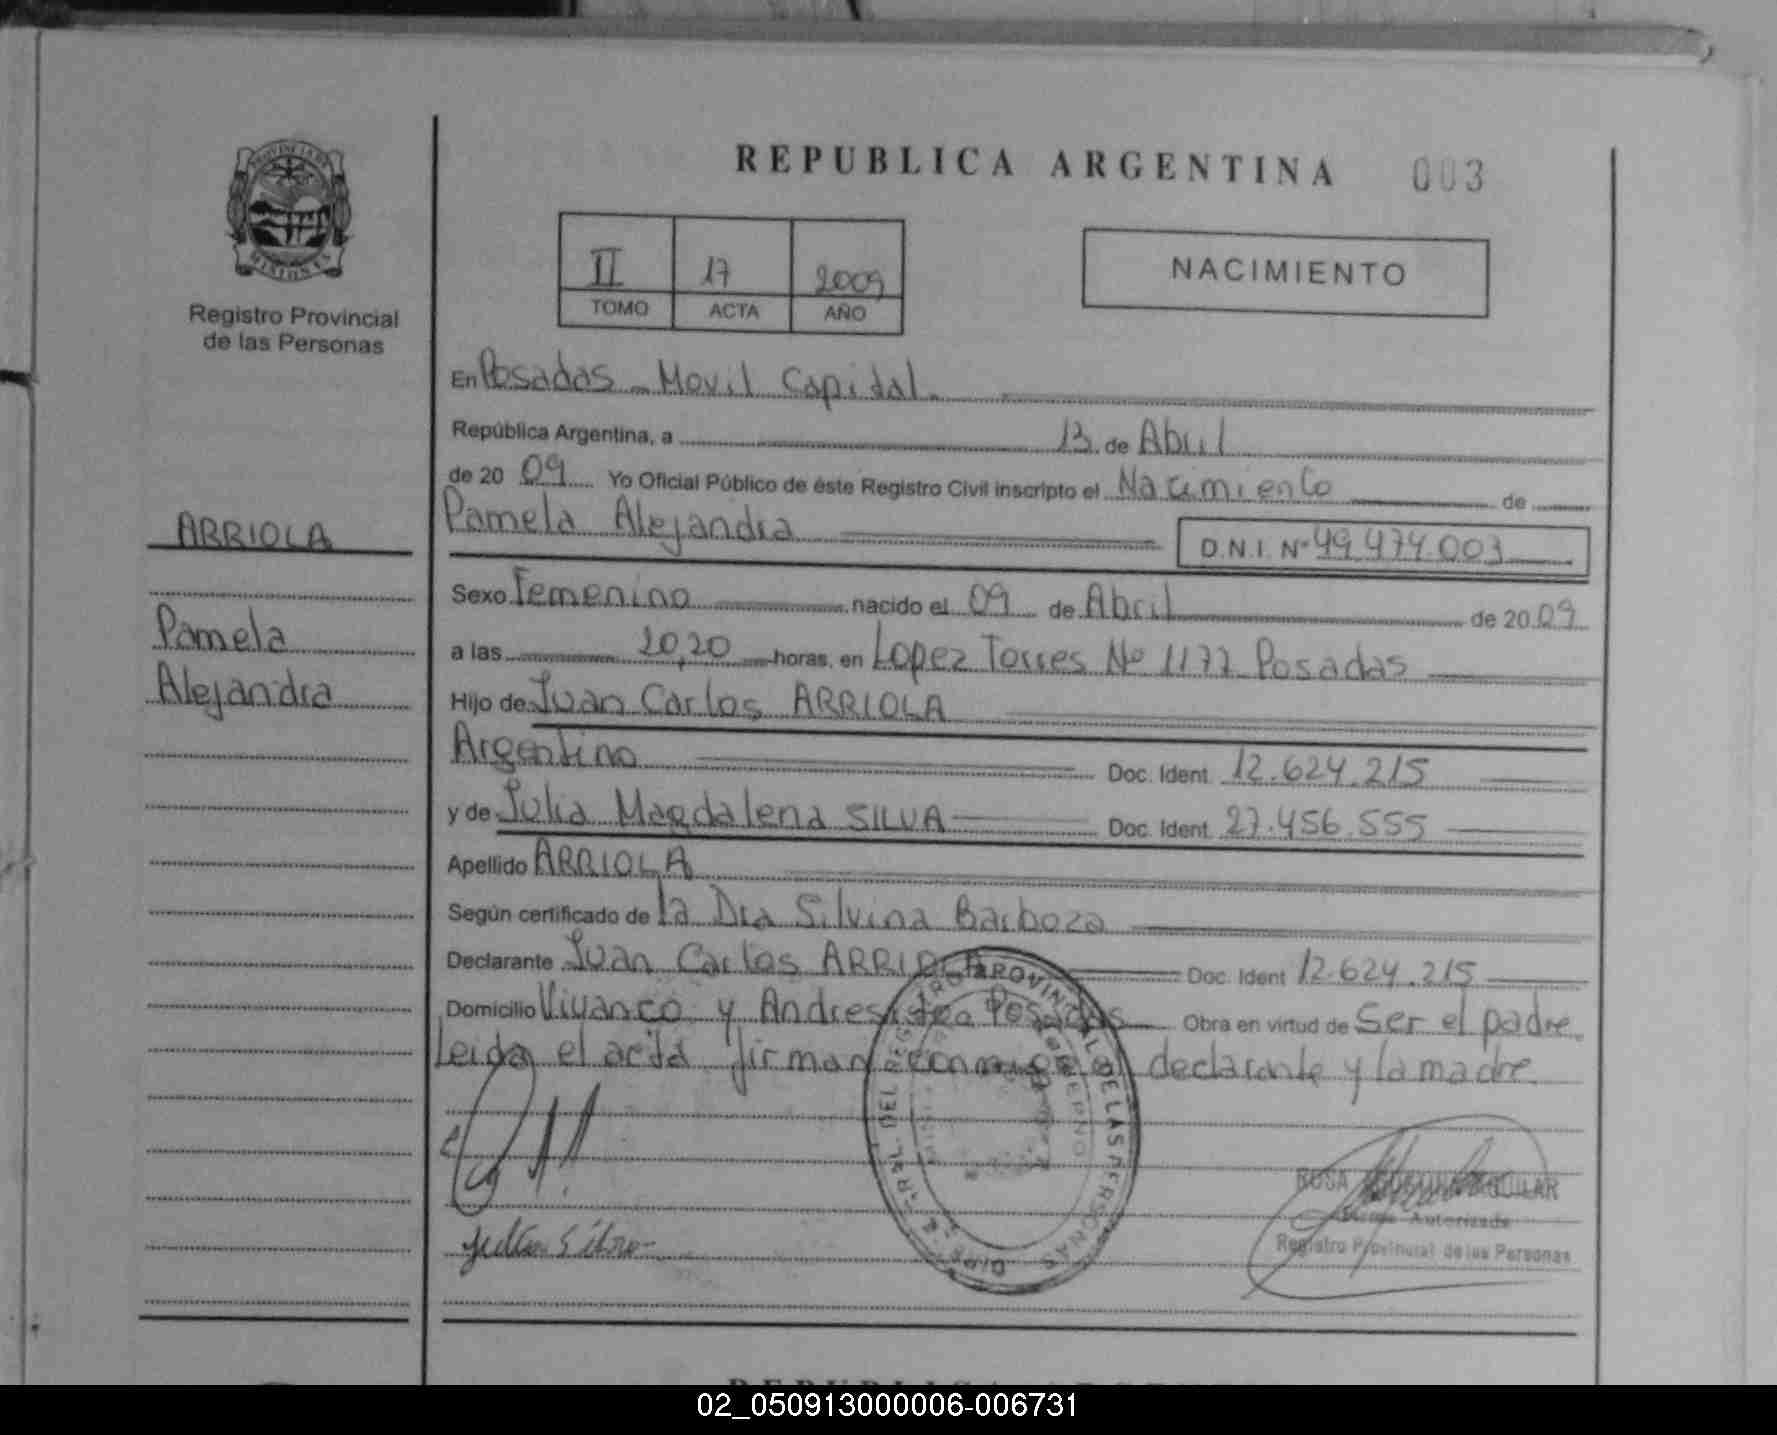 REPUBLICA ARGENTINA 003
PROVINCIA DE
MISIONES
Registro Provincial
de las Personas
II 17 2009
TOMO ACTA AÑO
NACIMIENTO
En Posadas - Movil Capital.
República Argentina, a 13 de Abril
de 20 09 Yo Oficial Público de éste Registro Civil inscripto el Nacimiento de
Pamela Alejandra D.N.I. Nº 49.474.003
ARRIOLA
Pamela
Alejandra
Sexo Femenino nacido el 09 de Abril de 20 09
a las 20,20 horas, en Lopez Torres Nº 1177 Posadas
Hijo de Juan Carlos ARRIOLA
Argentino Doc. Ident. 12.624.215
y de Julia Magdalena SILVA Doc. Ident. 27.456.555
Apellido ARRIOLA
Según certificado de la Dra Silvina Barboza
Declarante Juan Carlos ARRIOLA Doc. Ident 12.624.215
Domicilio Vivanco y Posadas Obra en virtud de Ser el padre
Leida el acta firman conmigo el declarante y la madre
DEL REGISTRO PROVINCIAL DE LAS PERSONAS
ROSA AGUILAR
Autorizada
Registro Provincial de las Personas
REPUBLICA ARGENTINA
02_050913000006-006731